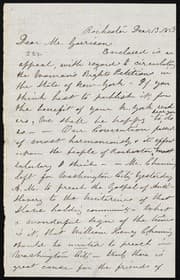 Rochester Dec. 13, 1853
Dear Mr. Garrison
Enclosed is an
appeal with regard to circulating
the Woman's Rights Petition in
the State of New-York - If you
think best to publish it for
the benefit of your N. York read
ers, We shall be happy to
- Our Convention passed
most harmoniously & its effect
the people of Rochester, most
salutary I think - Mr. Channing
left for Washington City yesterday
A.M. to preach the Gospel of Anti-
Slavery to the Ministers of that
Slave holding community - What
a wonderful sign of the times
is it, that William Henry Channing
should be invited to preach in
Washington City - Truly there is
great cause for the friends of